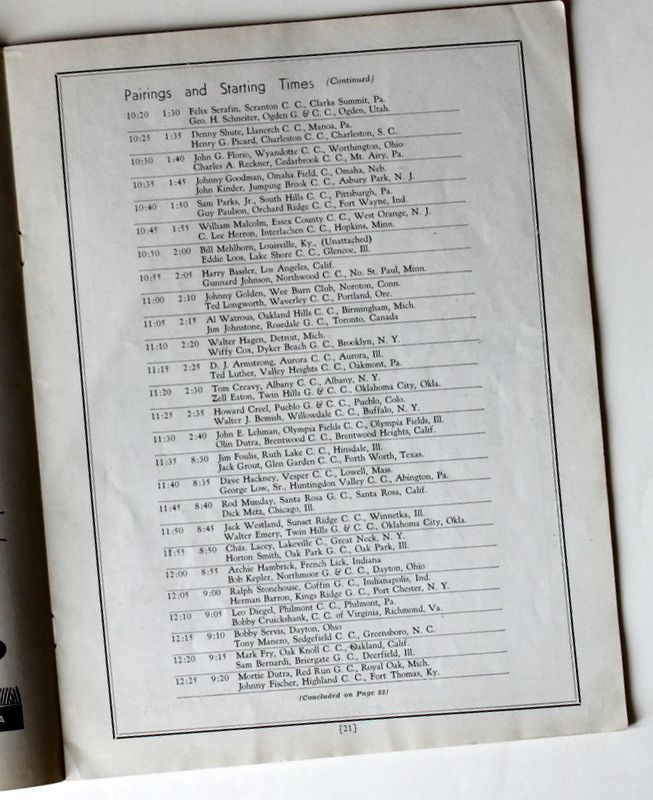 Pairings and Starting Times (Continued)
10:20 1:30 Felix Serafin, Scranton C. C., Clarks Summit, Pa.
Geo. H. Schneiter, Ogden G. & C. C., Ogden, Utah
10:25 1:35 Denny Shute, Llanerch C. C., Manoa, Pa.
Henry G. Picard, Charleston C. C., Charleston, S. C.
10:30 1:40 John G. Florio, Wyandotte C. C., Worthington, Ohio
Charles A. Reckner, Cedarbrook C. C., Mt. Airy, Pa.
10:35 1:45 Johnny Goodman, Omaha Field, C., Omaha, Neb.
John Kinder, Jumping Brook C. C., Asbury Park, N. J.
10:40 1:50 Sam Parks, Jr., South Hills C. C., Pittsburgh, Pa.
Guy Paulson, Orchard Ridge C. C., Fort Wayne, Ind.
10:45 1:55 William Malcolm, Essex County C. C., West Orange, N. J.
C. Lee Herron, Interlachen C. C., Hopkins, Minn.
10:50 2:00 Bill Mehlhorn, Louisville, Ky., (Unattached)
Eddie Loos, Lake Shore C. C., Glencoe, Ill.
10:55 2:05 Harry Bassler, Los Angeles, Calif.
Gunnard Johnson, Northwood C. C., No. St. Paul, Minn.
11:00 2:10 Johnny Golden, Wee Burn Club, Noroton, Conn.
Ted Longworth, Waverley C. C., Portland, Ore.
11:05 2:15 Al Watrous, Oakland Hills C. C., Birmingham, Mich.
Jim Johnstone, Rosedale G. C., Toronto, Canada
11:10 2:20 Walter Hagen, Detroit, Mich.
Wiffy Cox, Dyker Beach G. C., Brooklyn, N. Y.
11:15 2:25 D. J. Armstrong, Aurora C. C., Aurora, Ill.
Ted Luther, Valley Heights C. C., Oakmont, Pa.
11:20 2:30 Tom Creavy, Albany C. C., Albany, N. Y.
Zell Eaton, Twin Hills G. & C. C., Oklahoma City, Okla.
11:25 2:35 Howard Creel, Pueblo G. & C. C., Pueblo, Colo.
Walter J. Bemish, Willowdale C. C., Buffalo, N. Y.
11:30 2:40 John E. Lehman, Olympia Fields C. C., Olympia Fields, Ill.
Olin Dutra, Brentwood C. C., Brentwood Heights, Calif.
11:35 8:30 Jim Foulis, Ruth Lake C. C., Hinsdale, Ill.
Jack Grout, Glen Garden C. C., Forth Worth, Texas.
11:40 8:35 Dave Hackney, Vesper C. C., Lowell, Mass.
George Low, Sr., Huntingdon Valley C. C., Abington, Pa.
11:45 8:40 Rod Munday, Santa Rosa G. C., Santa Rosa, Calif.
Dick Metz, Chicago, Ill.
11:50 8:45 Jack Westland, Sunset Ridge C. C., Winnetka, Ill.
Walter Emery, Twin Hills G. & C. C., Oklahoma City, Okla.
11:55 8:50 Chas. Lacey, Lakeville C., Great Neck, N. Y.
Horton Smith, Oak Park G. C., Oak Park, Ill.
12:00 8:55 Archie Hambrick, French Lick, Indiana
Bob Kepler, Northmoor G. & C. C., Dayton, Ohio
12:05 9:00 Ralph Stonehouse, Coffin G. C., Indianapolis, Ind.
Herman Barron, Kings Ridge G. C., Port Chester, N. Y.
12:10 9:05 Leo Diegel, Philmont C. C., Philmont, Pa.
Bobby Cruickshank, C. C. of Virginia, Richmond, Va.
12:15 9:10 Bobby Servis, Dayton, Ohio
Tony Manero, Sedgefield C. C., Greensboro, N. C.
12:20 9:15 Mark Fry, Oak Knoll C. C., Oakland, Calif.
Sam Bernardi, Briergate G. C., Deerfield, Ill.
12:25 9:20 Mortie Dutra, Red Run G. C., Royal Oak, Mich.
Johnny Fischer, Highland C. C., Fort Thomas, Ky.
(Concluded on Page 23)
[21]